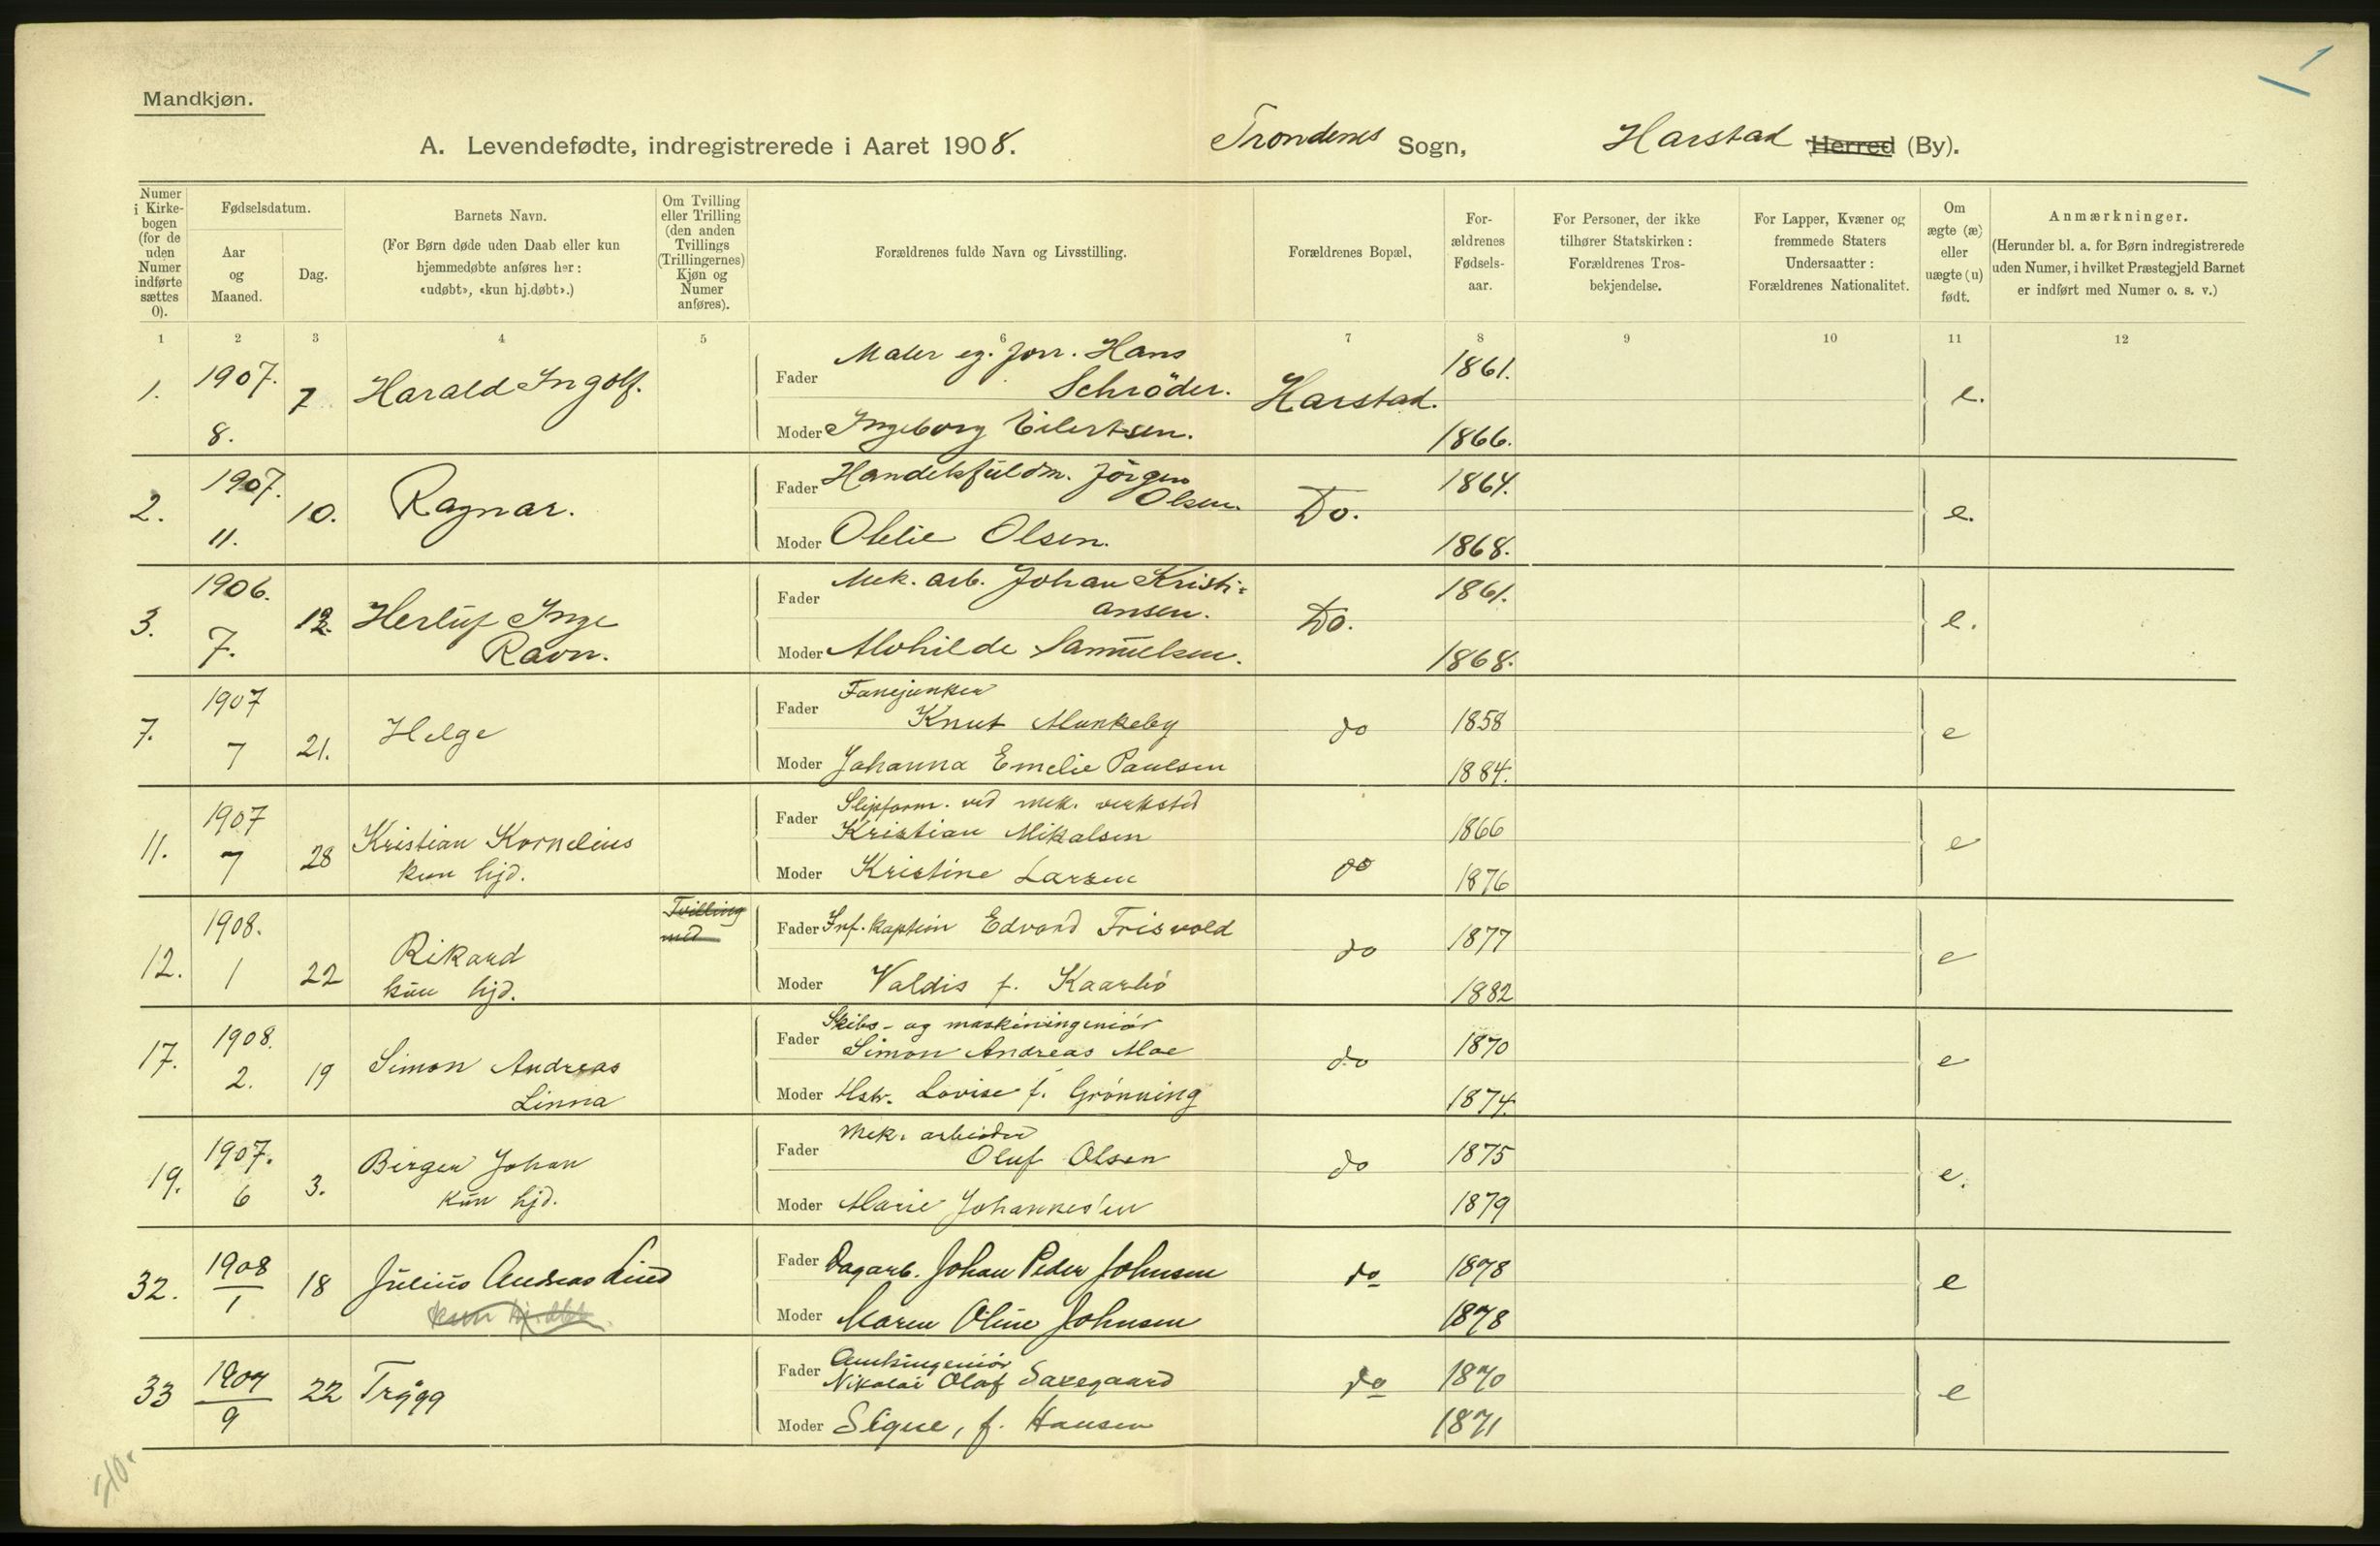 1
Mandkjøn.
A. Levendefødte, indregistrerede i Aaret 1908. Trondenes Sogn, Harstad Herred (By).
Numer i Kirkebogen (for de uden Numer indførte sættes 0).
Fødselsdatum.
Aar og Maaned.
Dag.
Barnets Navn.
(For Børn døde uden Daab eller kun hjemmedøbte anføres her: «udøbt», «kun hj.døbt».)
Om Tvilling eller Trilling (den anden Tvillings (Trillingernes) Kjøn og Numer anføres).
Forældrenes fulde Navn og Livsstilling.
Forældrenes Bopæl,
For-ældrenes Fødsels-aar.
For Personer, der ikke tilhører Statskirken: Forældrenes Tros-bekjendelse.
For Lapper, Kvæner og fremmede Staters Undersaatter: Forældrenes Nationalitet.
Om ægte (æ) eller uægte (u) født.
Anmærkninger.
(Herunder bl. a. for Børn indregistrerede uden Numer, i hvilket Præstegjeld Barnet er indført med Numer o. s. v.)
1 2 3 4 5 6 7 8 9 10 11 12
1. 1907. 8. 7 Harald Ingolf.
Fader Maler og. forr. Hans Schröder. Harstad. 1861. e.
Moder Ingeborg Eilertsen. 1866.
2. 1907. 11. 10. Ragnar.
Fader Handelsfuldm. Jörgen Olsen. Do. 1864. e.
Moder Olelie Olsen. 1868.
3. 1906. 7. 12. Herluf Inge Ravn.
Fader Mek. arb. Johan Kristi=ansen. Do. 1861. e.
Moder Alvhilde Samuelsen. 1868.
7. 1907 7 21. Helge
Fader Fanejunker Knut Munkeby do 1858 e
Moder Johanna Emelie Paulsen 1884.
11. 1907 7 28 Kristian Kornelius kun hjd.
Fader Slipform. ved mek. verksted Kristian Mikalsen do 1866 e
Moder Kristine Larsen 1876
12. 1908. 1 22 Rikard kun hjd. Tvilling med
Fader Inf. kaptein Edvard Frisvold do 1877 e
Moder Valdis f. Kaarbø 1882
17. 1908. 2. 19 Simon Andreas Linna
Fader Skibs- og maskiningeniør Simon Andreas Moe do 1870 e
Moder Hstr. Lovise f. Grønning 1874.
19. 1907. 6 3. Birger Johan kun hjd.
Fader Mek. arbeider Oluf Olsen do 1875 e.
Moder Marie Johannesen 1879
32. 1908 1 18 Julius Andreas Lind kun hj.døbt.
Fader Dagarb. Johan Peder Johnsen do 1878 e
Moder Maren Oline Johnsen 1878
33 1907 9 22 Trygg
Fader Amtsingeniør Nikolai Olaf Saxegaard do 1870 e
Moder Signe, f. Hansen 1871